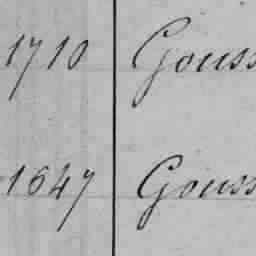 1710 Gouss
1647 Gouss